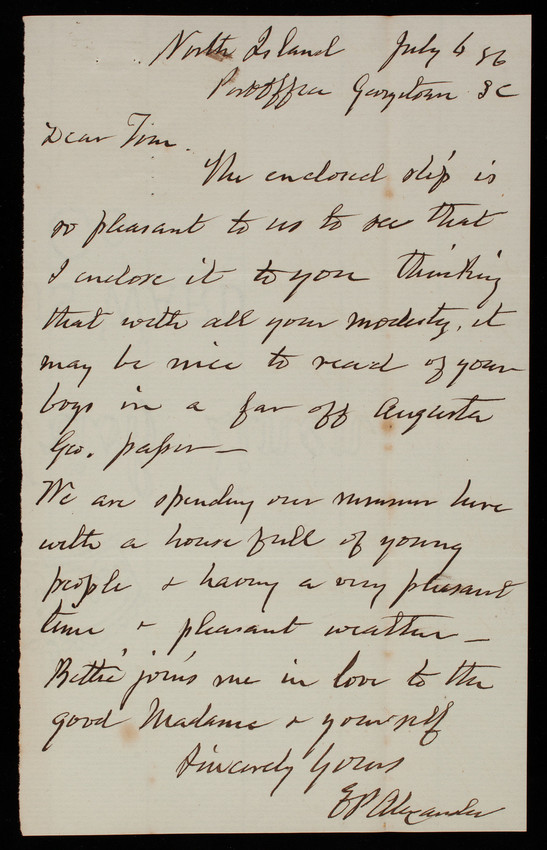 North Island July 6 86
Postoffice Georgetown SC
Dear Tom.
The enclosed slip is
so pleasant to us to see that
I enclose it to you thinking
that with all your modesty, it
may be nice to read of your
boys in a far off Augusta
Geo. paper—
We are spending our summer here
with a house full of young
people & having a very pleasant
time & pleasant weather—
Bettie joins me in love to the
good Madame & yourself
Sincerely Yours
EPAlexander